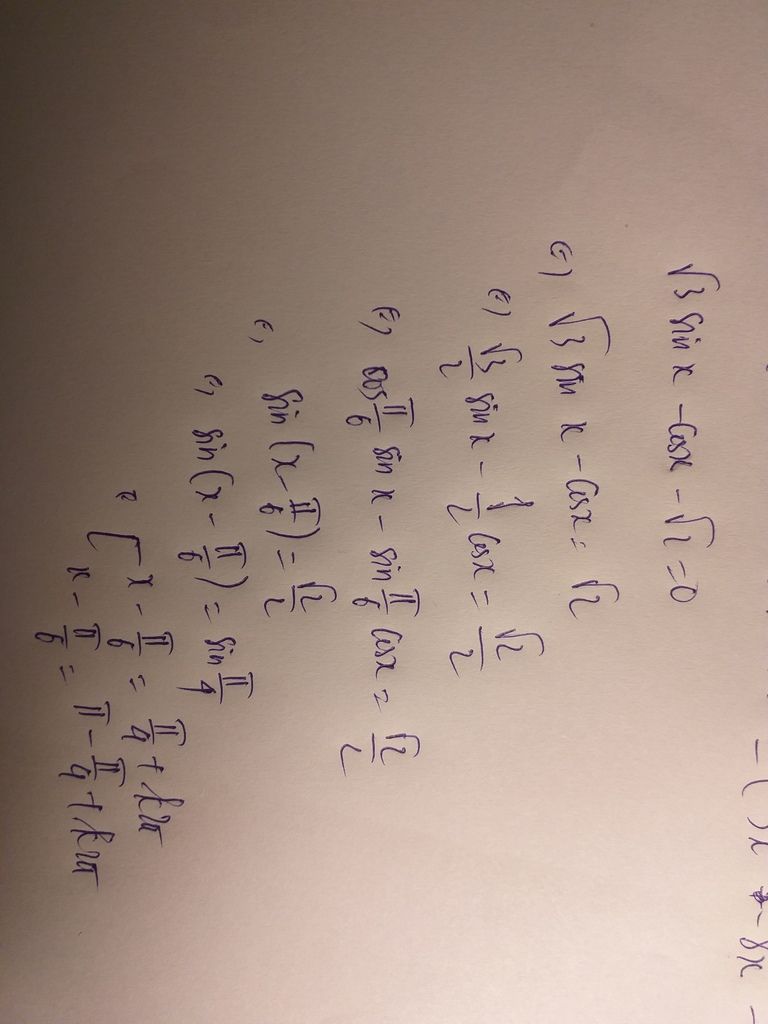 √3 sin x - cosx - √2 = 0
⇔ √3 sin x - cosx = √2
⇔ √3/2 sin x - 1/2 cosx = √2/2
⇔ cos π/6 sin x - sin π/6 cosx = √2/2
⇔ sin (x - π/6) = √2/2
⇔ sin (x - π/6) = sin π/4
⇔ [ x - π/6 = π/4 + k2π
x - π/6 = π - π/4 + k2π